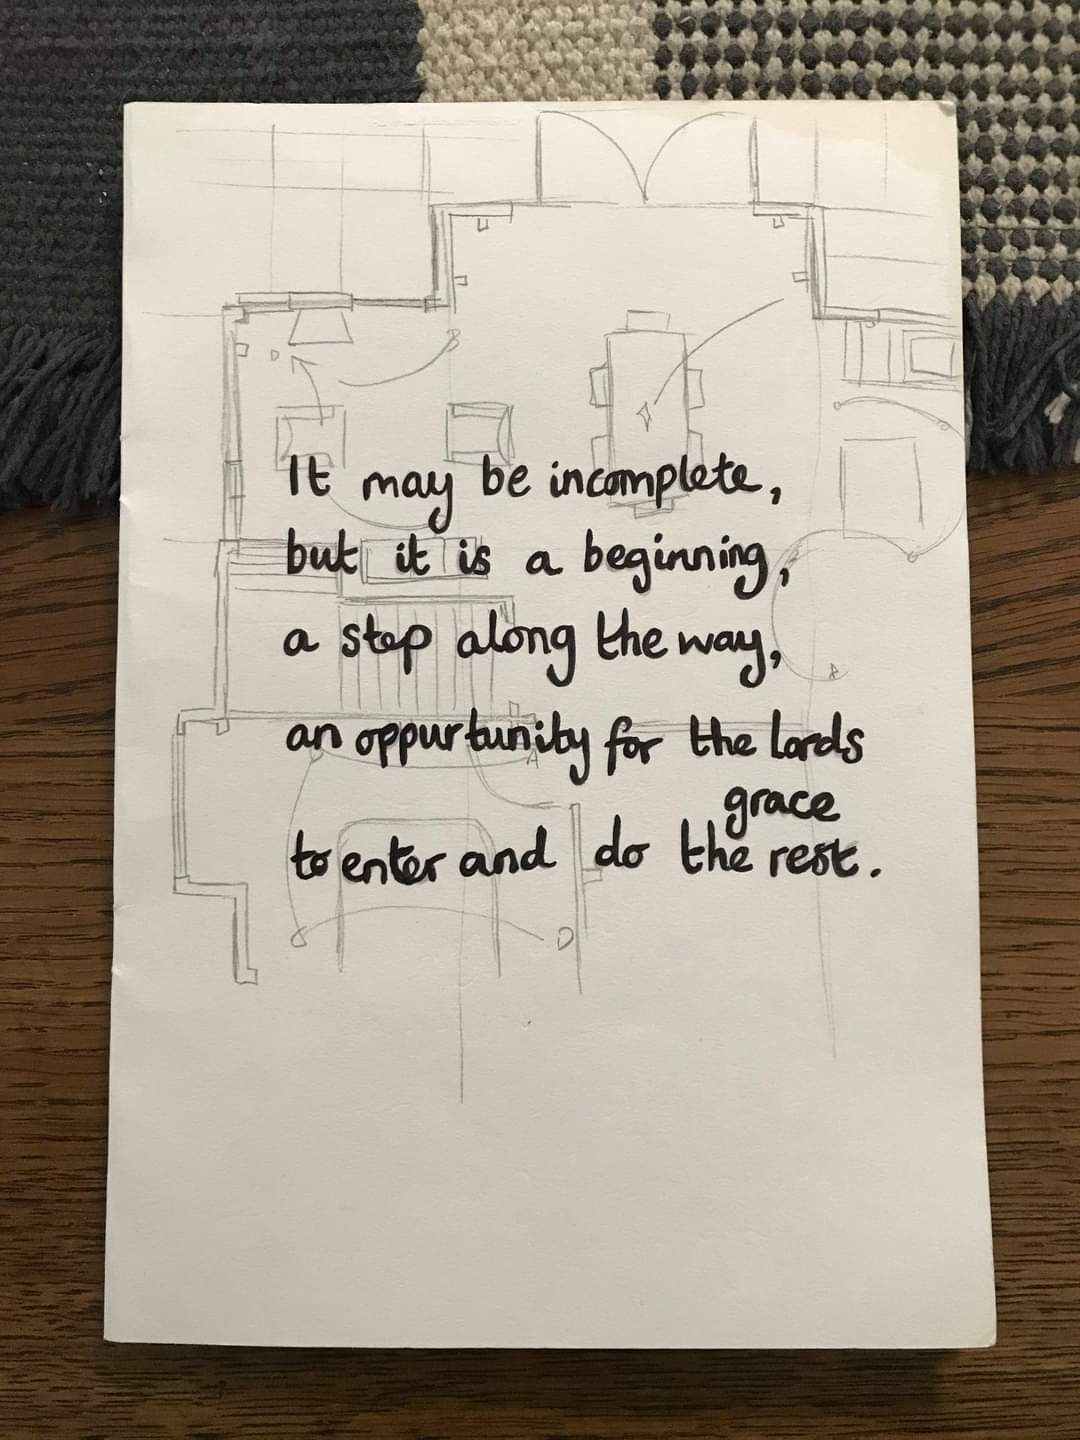 It may be incomplete,
but it is a beginning,
a step along the way,
an oppurtunity for the lords
grace
to enter and do the rest.